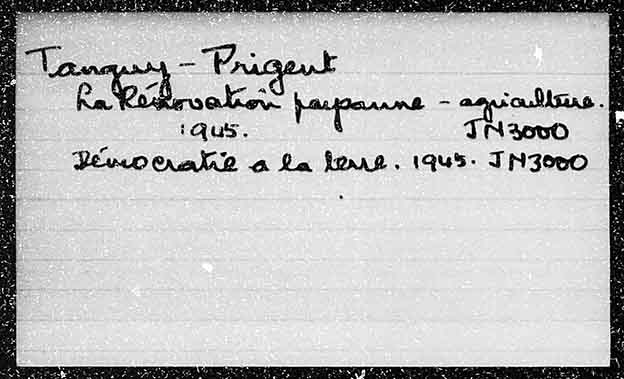 Tanguy - Prigent
La Rénovation paysanne - agriculture.
1945. JN3000
Démocratie a la terre. 1945. JN3000